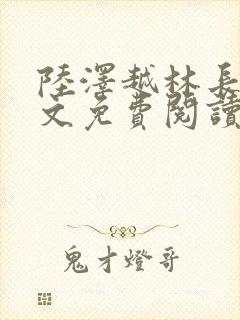 陸澤越林長
文免費閱讀
鬼才燈哥